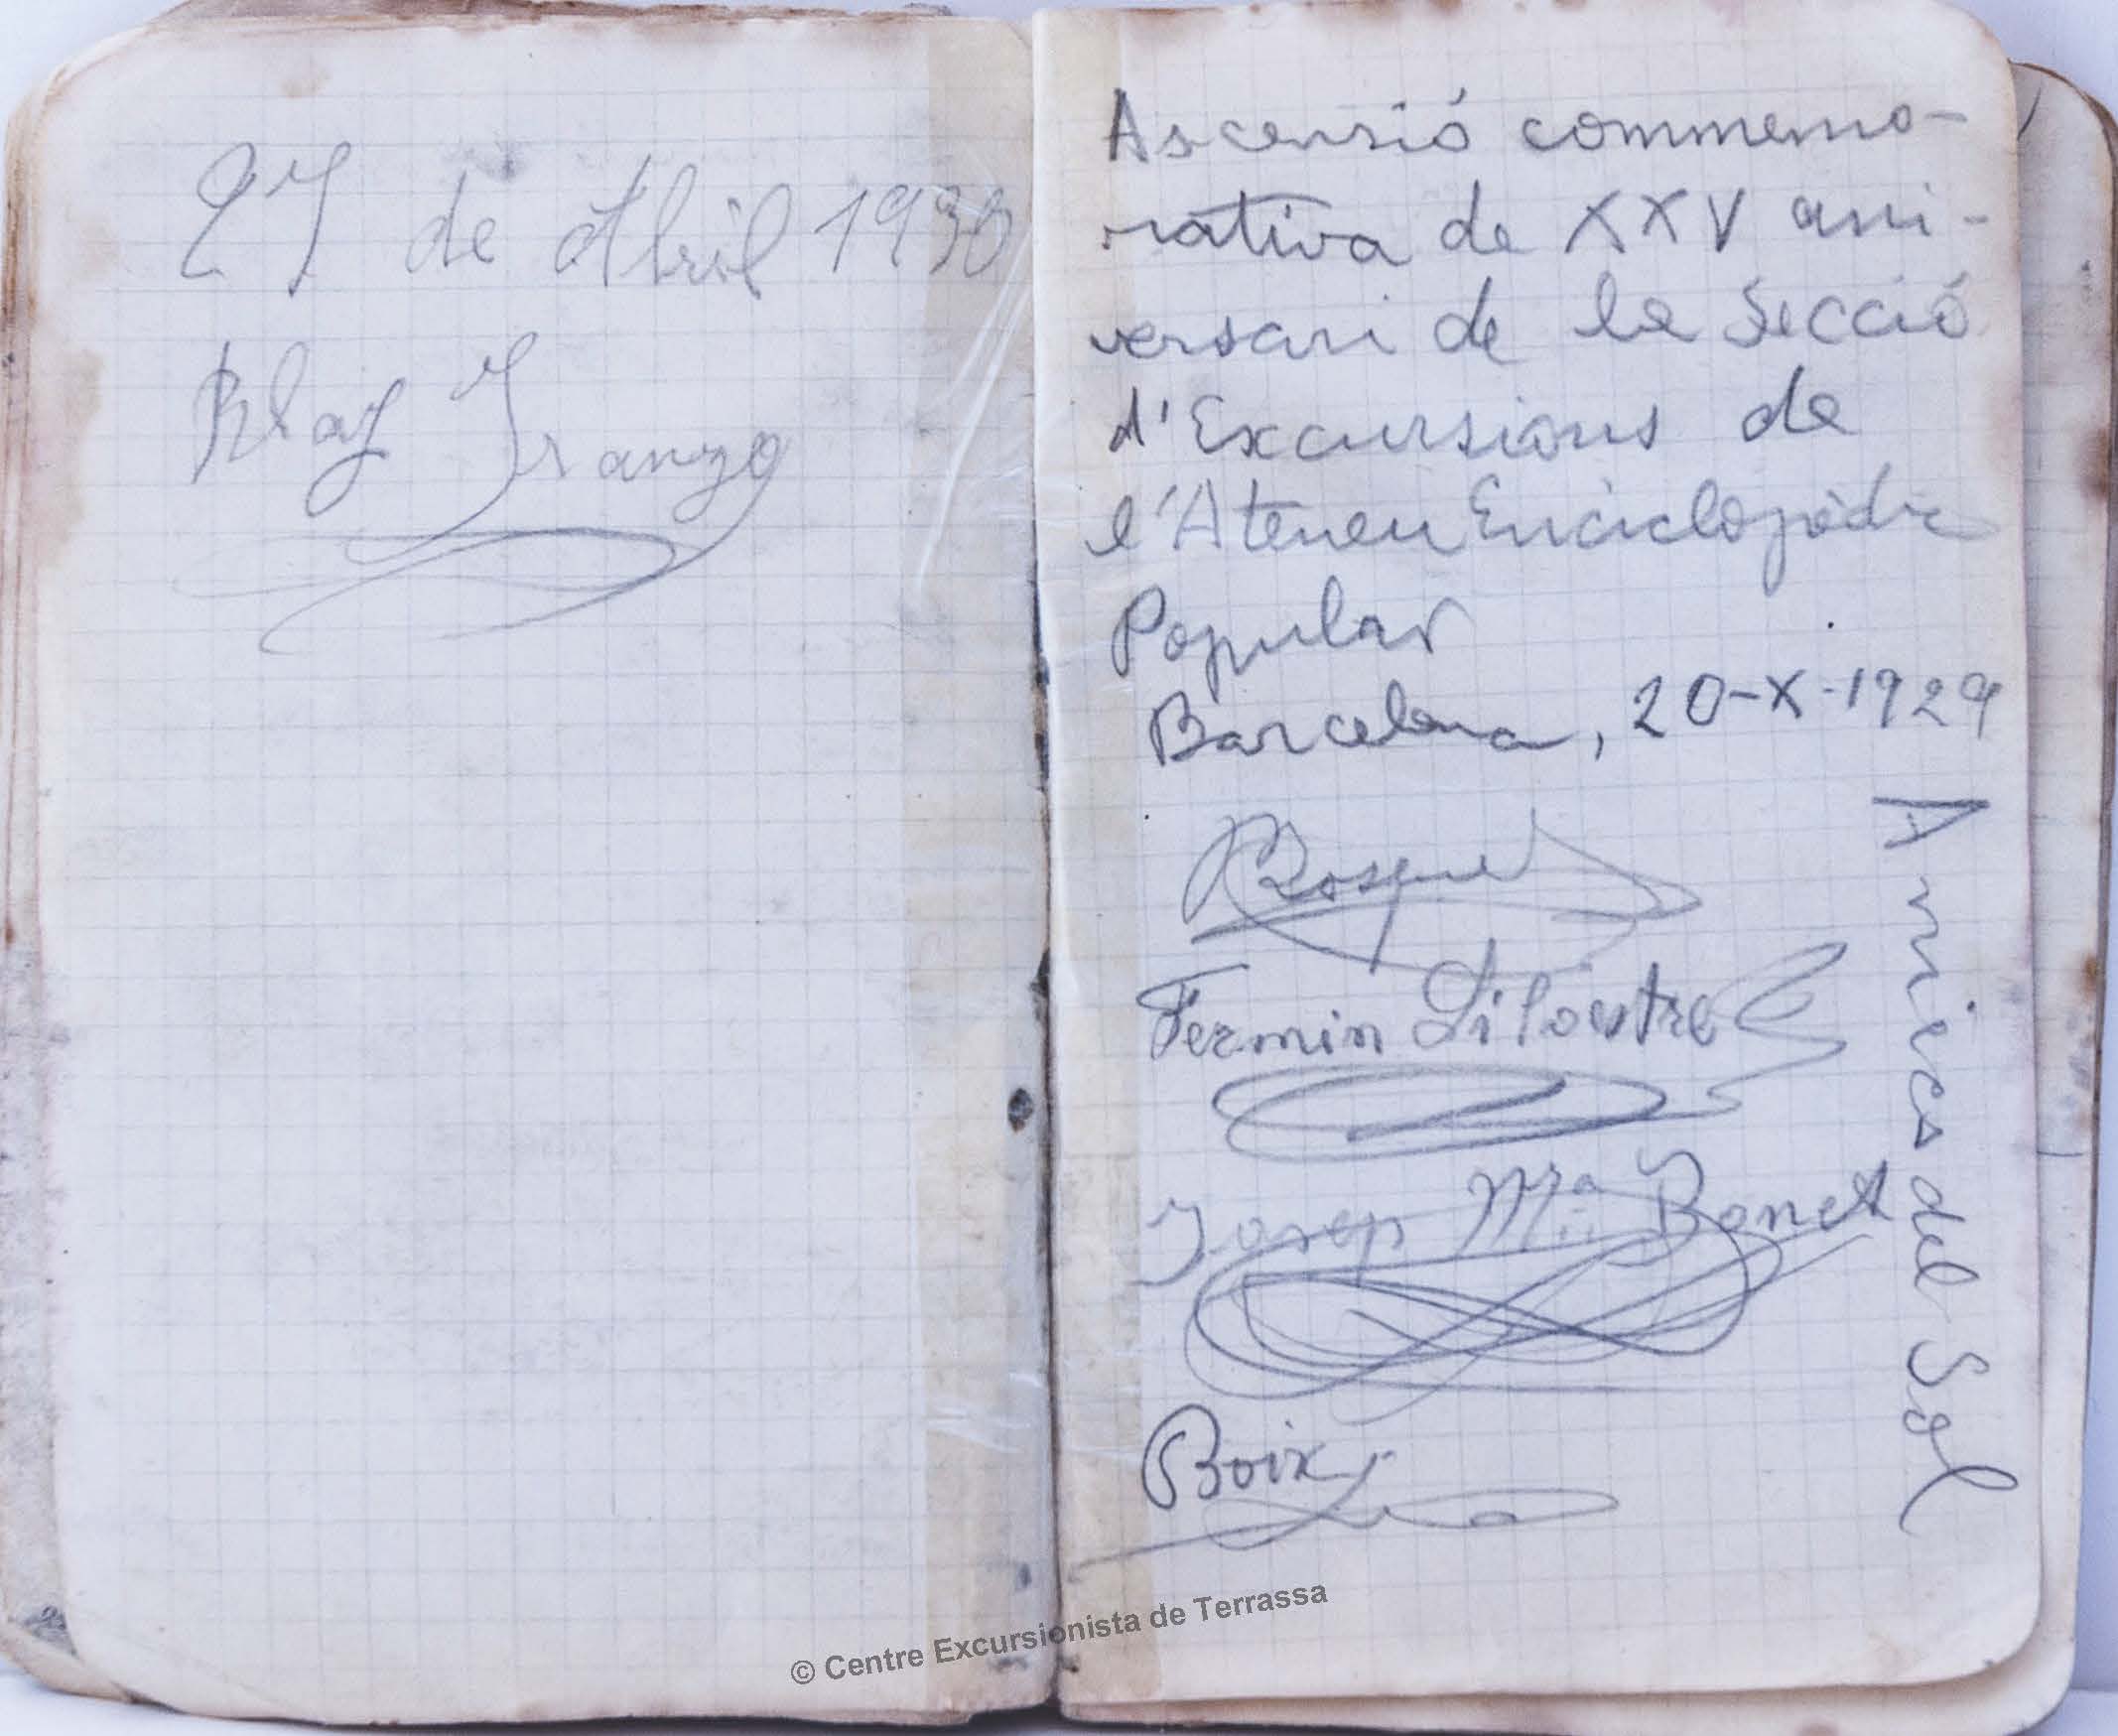 27 de Abril 1930
Blay Iranzo
Ascensió commemo-
rativa de XXV ani-
versari de la Secció
d'Excursions de
l'Ateneu Enciclopèdic
Popular
Barcelona, 20-X-1929
Bosque
Fermin Silvestre
Josep Mª Bonet
Boix
Amics del Sol
© Centre Excursionista de Terrassa